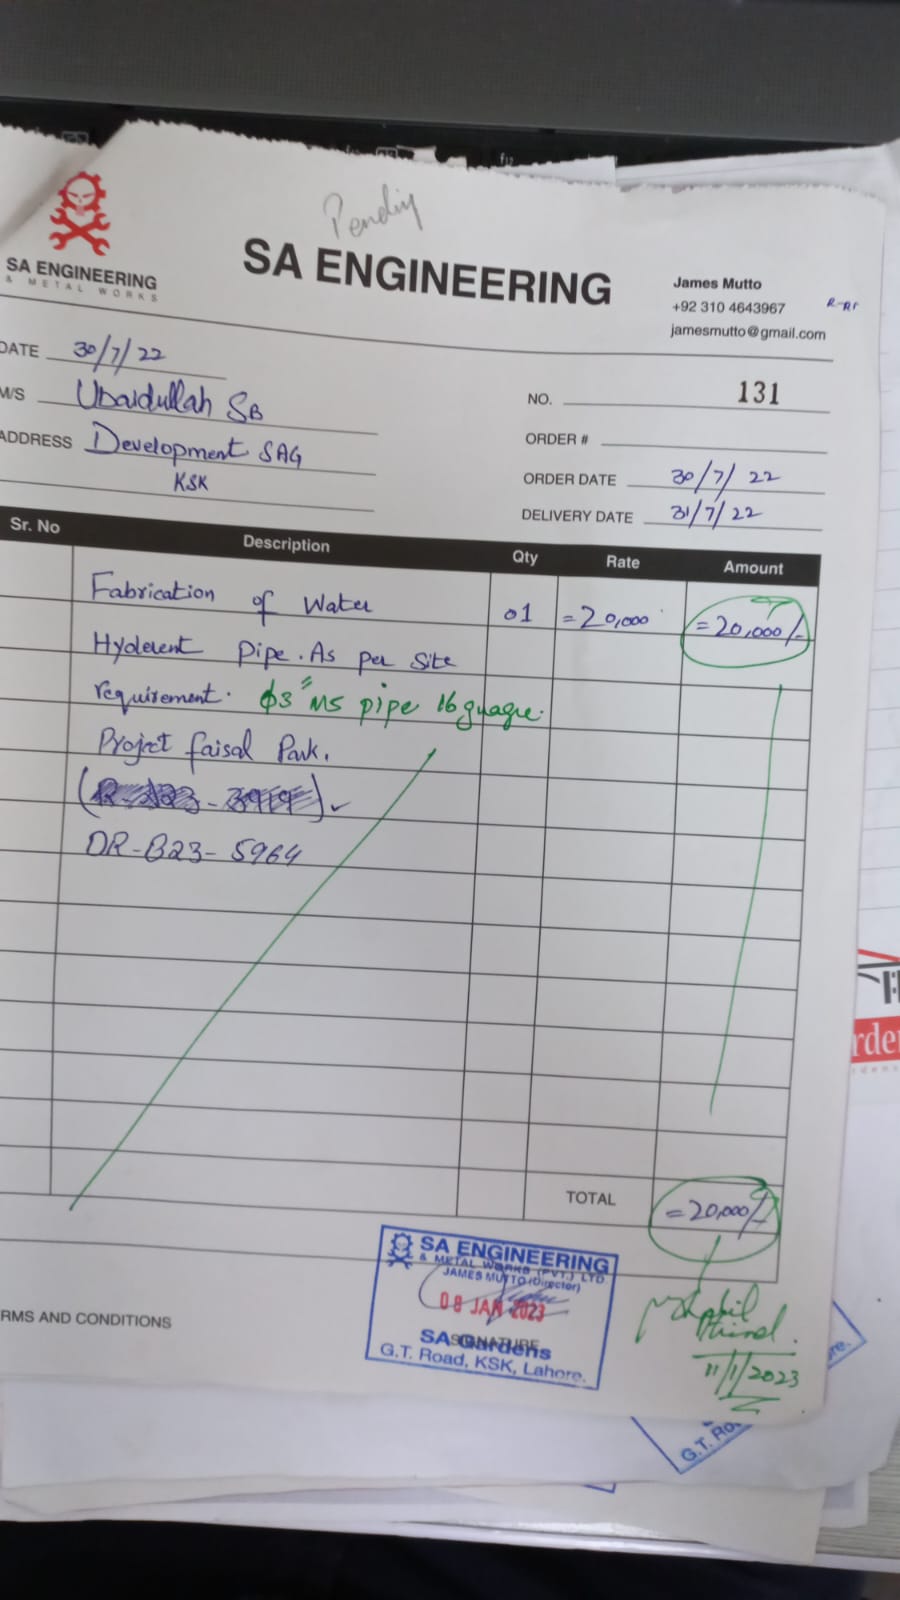 Pending
SA ENGINEERING
& METAL WORKS
SA ENGINEERING
James Mutto
+92 310 4643967
jamesmutto@gmail.com
DATE 30/7/22
M/S Ubaidullah SB
ADDRESS Development SAG
KSK
NO. 131
ORDER #
ORDER DATE 30/7/22
DELIVERY DATE 31/7/22
Sr. No Description Qty Rate Amount
Fabrication of Water 01 =20,000 =20,000/-
Hyderent Pipe. As per Site
requirement. ϕ3" MS pipe 16 guagre.
Project faisal Park.
DR-B23-5964
TOTAL =20,000/-
SA ENGINEERING
& METAL WORKS (PVT.) LTD.
JAMES MUTTO (Director)
08 JAN 2023
SIGNATURE
SA Gardens
G.T. Road, KSK, Lahore.
11/1/2023
RMS AND CONDITIONS
G.T. Ro
rde